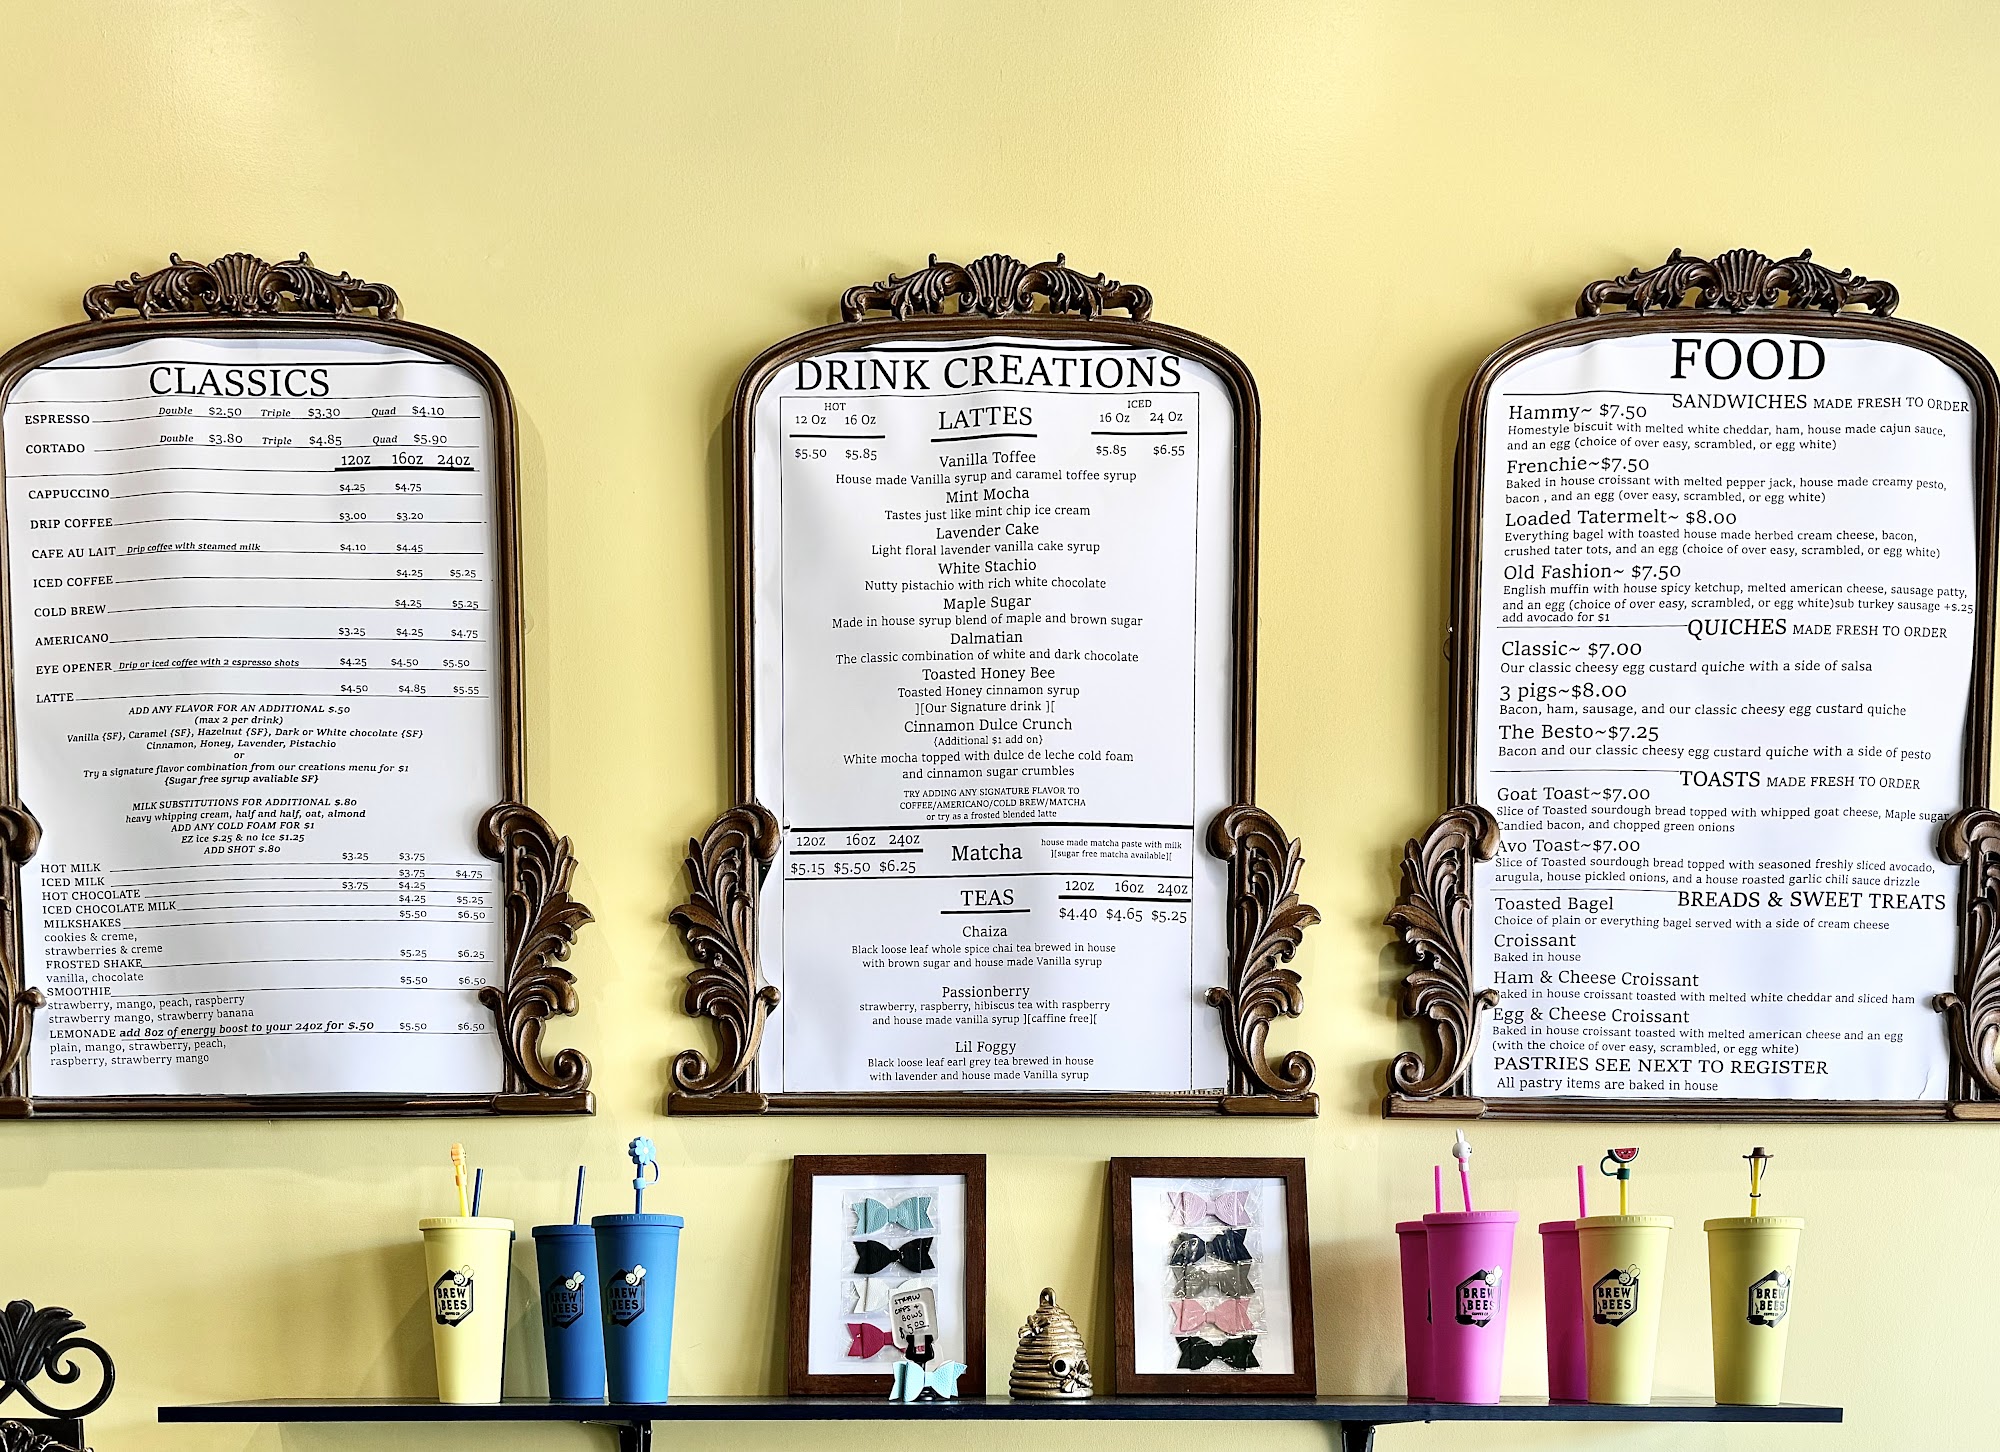 CLASSICS
ESPRESSO Double $2.50 Triple $3.30 Quad $4.10
CORTADO Double $3.80 Triple $4.85 Quad $5.90
12oz 16oz 24oz
CAPPUCCINO $4.25 $4.75
DRIP COFFEE $3.00 $3.20
CAFE AU LAIT Drip coffee with steamed milk $4.10 $4.45
ICED COFFEE $4.25 $5.25
COLD BREW $4.25 $5.25
AMERICANO $3.25 $4.25 $4.75
EYE OPENER Drip or iced coffee with 2 espresso shots $4.25 $4.50 $5.50
LATTE $4.50 $4.85 $5.55
ADD ANY FLAVOR FOR AN ADDITIONAL $.50
(max 2 per drink)
Vanilla {SF}, Caramel {SF}, Hazelnut {SF}, Dark or White chocolate {SF}
Cinnamon, Honey, Lavender, Pistachio
or
Try a signature flavor combination from our creations menu for $1
{Sugar free syrup avaliable SF}
MILK SUBSTITUTIONS FOR ADDITIONAL $.80
heavy whipping cream, half and half, oat, almond
ADD ANY COLD FOAM FOR $1
EZ ice $.25 & no ice $1.25
ADD SHOT $.80
HOT MILK $3.25 $3.75
ICED MILK $3.75 $4.75
HOT CHOCOLATE $3.75 $4.25
ICED CHOCOLATE MILK $4.25 $5.25
MILKSHAKES $5.50 $6.50
cookies & creme,
strawberries & creme
FROSTED SHAKE $5.25 $6.25
vanilla, chocolate
SMOOTHIE $5.50 $6.50
strawberry, mango, peach, raspberry
strawberry mango, strawberry banana
LEMONADE add 8oz of energy boost to your 24oz for $.50 $5.50 $6.50
plain, mango, strawberry, peach,
raspberry, strawberry mango
DRINK CREATIONS
HOT ICED
12 Oz 16 Oz LATTES 16 Oz 24 Oz
$5.50 $5.85 $5.85 $6.55
Vanilla Toffee
House made Vanilla syrup and caramel toffee syrup
Mint Mocha
Tastes just like mint chip ice cream
Lavender Cake
Light floral lavender vanilla cake syrup
White Stachio
Nutty pistachio with rich white chocolate
Maple Sugar
Made in house syrup blend of maple and brown sugar
Dalmatian
The classic combination of white and dark chocolate
Toasted Honey Bee
Toasted Honey cinnamon syrup
][Our Signature drink ][
Cinnamon Dulce Crunch
{Additional $1 add on}
White mocha topped with dulce de leche cold foam
and cinnamon sugar crumbles
TRY ADDING ANY SIGNATURE FLAVOR TO
COFFEE/AMERICANO/COLD BREW/MATCHA
or try as a frosted blended latte
12oz 16oz 24oz
Matcha
house made matcha paste with milk
][sugar free matcha available][
$5.15 $5.50 $6.25
TEAS
12oz 16oz 24oz
$4.40 $4.65 $5.25
Chaiza
Black loose leaf whole spice chai tea brewed in house
with brown sugar and house made Vanilla syrup
Passionberry
strawberry, raspberry, hibiscus tea with raspberry
and house made vanilla syrup ][caffine free][
Lil Foggy
Black loose leaf earl grey tea brewed in house
with lavender and house made Vanilla syrup
FOOD
SANDWICHES MADE FRESH TO ORDER
Hammy~ $7.50
Homestyle biscuit with melted white cheddar, ham, house made cajun sauce,
and an egg (choice of over easy, scrambled, or egg white)
Frenchie~$7.50
Baked in house croissant with melted pepper jack, house made creamy pesto,
bacon , and an egg (over easy, scrambled, or egg white)
Loaded Tatermelt~ $8.00
Everything bagel with toasted house made herbed cream cheese, bacon,
crushed tater tots, and an egg (choice of over easy, scrambled, or egg white)
Old Fashion~ $7.50
English muffin with house spicy ketchup, melted american cheese, sausage patty,
and an egg (choice of over easy, scrambled, or egg white)sub turkey sausage +$.25
add avocado for $1
QUICHES MADE FRESH TO ORDER
Classic~ $7.00
Our classic cheesy egg custard quiche with a side of salsa
3 pigs~$8.00
Bacon, ham, sausage, and our classic cheesy egg custard quiche
The Besto~$7.25
Bacon and our classic cheesy egg custard quiche with a side of pesto
TOASTS MADE FRESH TO ORDER
Goat Toast~$7.00
Slice of Toasted sourdough bread topped with whipped goat cheese, Maple sugar
Candied bacon, and chopped green onions
Avo Toast~$7.00
Slice of Toasted sourdough bread topped with seasoned freshly sliced avocado,
arugula, house pickled onions, and a house roasted garlic chili sauce drizzle
BREADS & SWEET TREATS
Toasted Bagel
Choice of plain or everything bagel served with a side of cream cheese
Croissant
Baked in house
Ham & Cheese Croissant
Baked in house croissant toasted with melted white cheddar and sliced ham
Egg & Cheese Croissant
Baked in house croissant toasted with melted american cheese and an egg
(with the choice of over easy, scrambled, or egg white)
PASTRIES SEE NEXT TO REGISTER
All pastry items are baked in house
BREW
BEES
COFFEE CO
BREW
BEES
BREW
BEES
COFFEE CO
STRAW
CAPS +
BOWS
$5.00
BREW
BEES
COFFEE CO
BREW
BEES
COFFEE CO
BREW
BEES
COFFEE CO